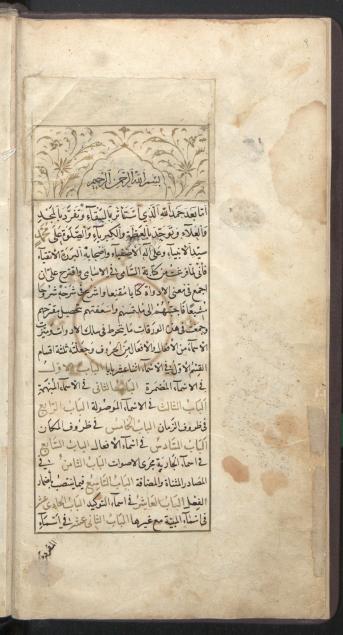 بسم الله الرحمن الرحيم
اما بعد حمد الله الذي استاثر بالبقاء وتفرد بالمجد
والعلاء وتوحد بالعظمة والكبرياء والصلوة على محمد
سيد الانبياء وعلى آله الاصفياء واصحابه البررة الاتقياء
فاني لما فرغت من كتابة السامي في الاسامي واقترح علي ان
اجمع في معنى الادوات كتابا مقنعا واشرع في شرحه شروعا
مشبعا فاجبتهم الى ملتمسهم واسعفتهم بتحصيل مقترحهم
وجمعت في هذه الورقات ما ينخرط في سلك الادوات وميزت
الاسماء من الافعال والافعال من الحروف وجعلته ثلثة اقسام
القسم الاول في الاسماء اثنا عشر بابا الباب الاول
في الاسماء المضمرة الباب الثاني في الاسماء المبهمة
الباب الثالث في الاسماء الموصولة الباب الرابع
في ظروف الزمان الباب الخامس في ظروف المكان
الباب السادس في اسماء الافعال الباب السابع
في اسماء الجارية مجرى الاصوات الباب الثامن في
المصادر المثناة والمضافة الباب التاسع فيما ينتصب باضمار
الفعل الباب العاشر في اسماء التوكيد الباب الحادي عشر
في اسماء المبنية مع غيرها الباب الثاني عشر في اسماء